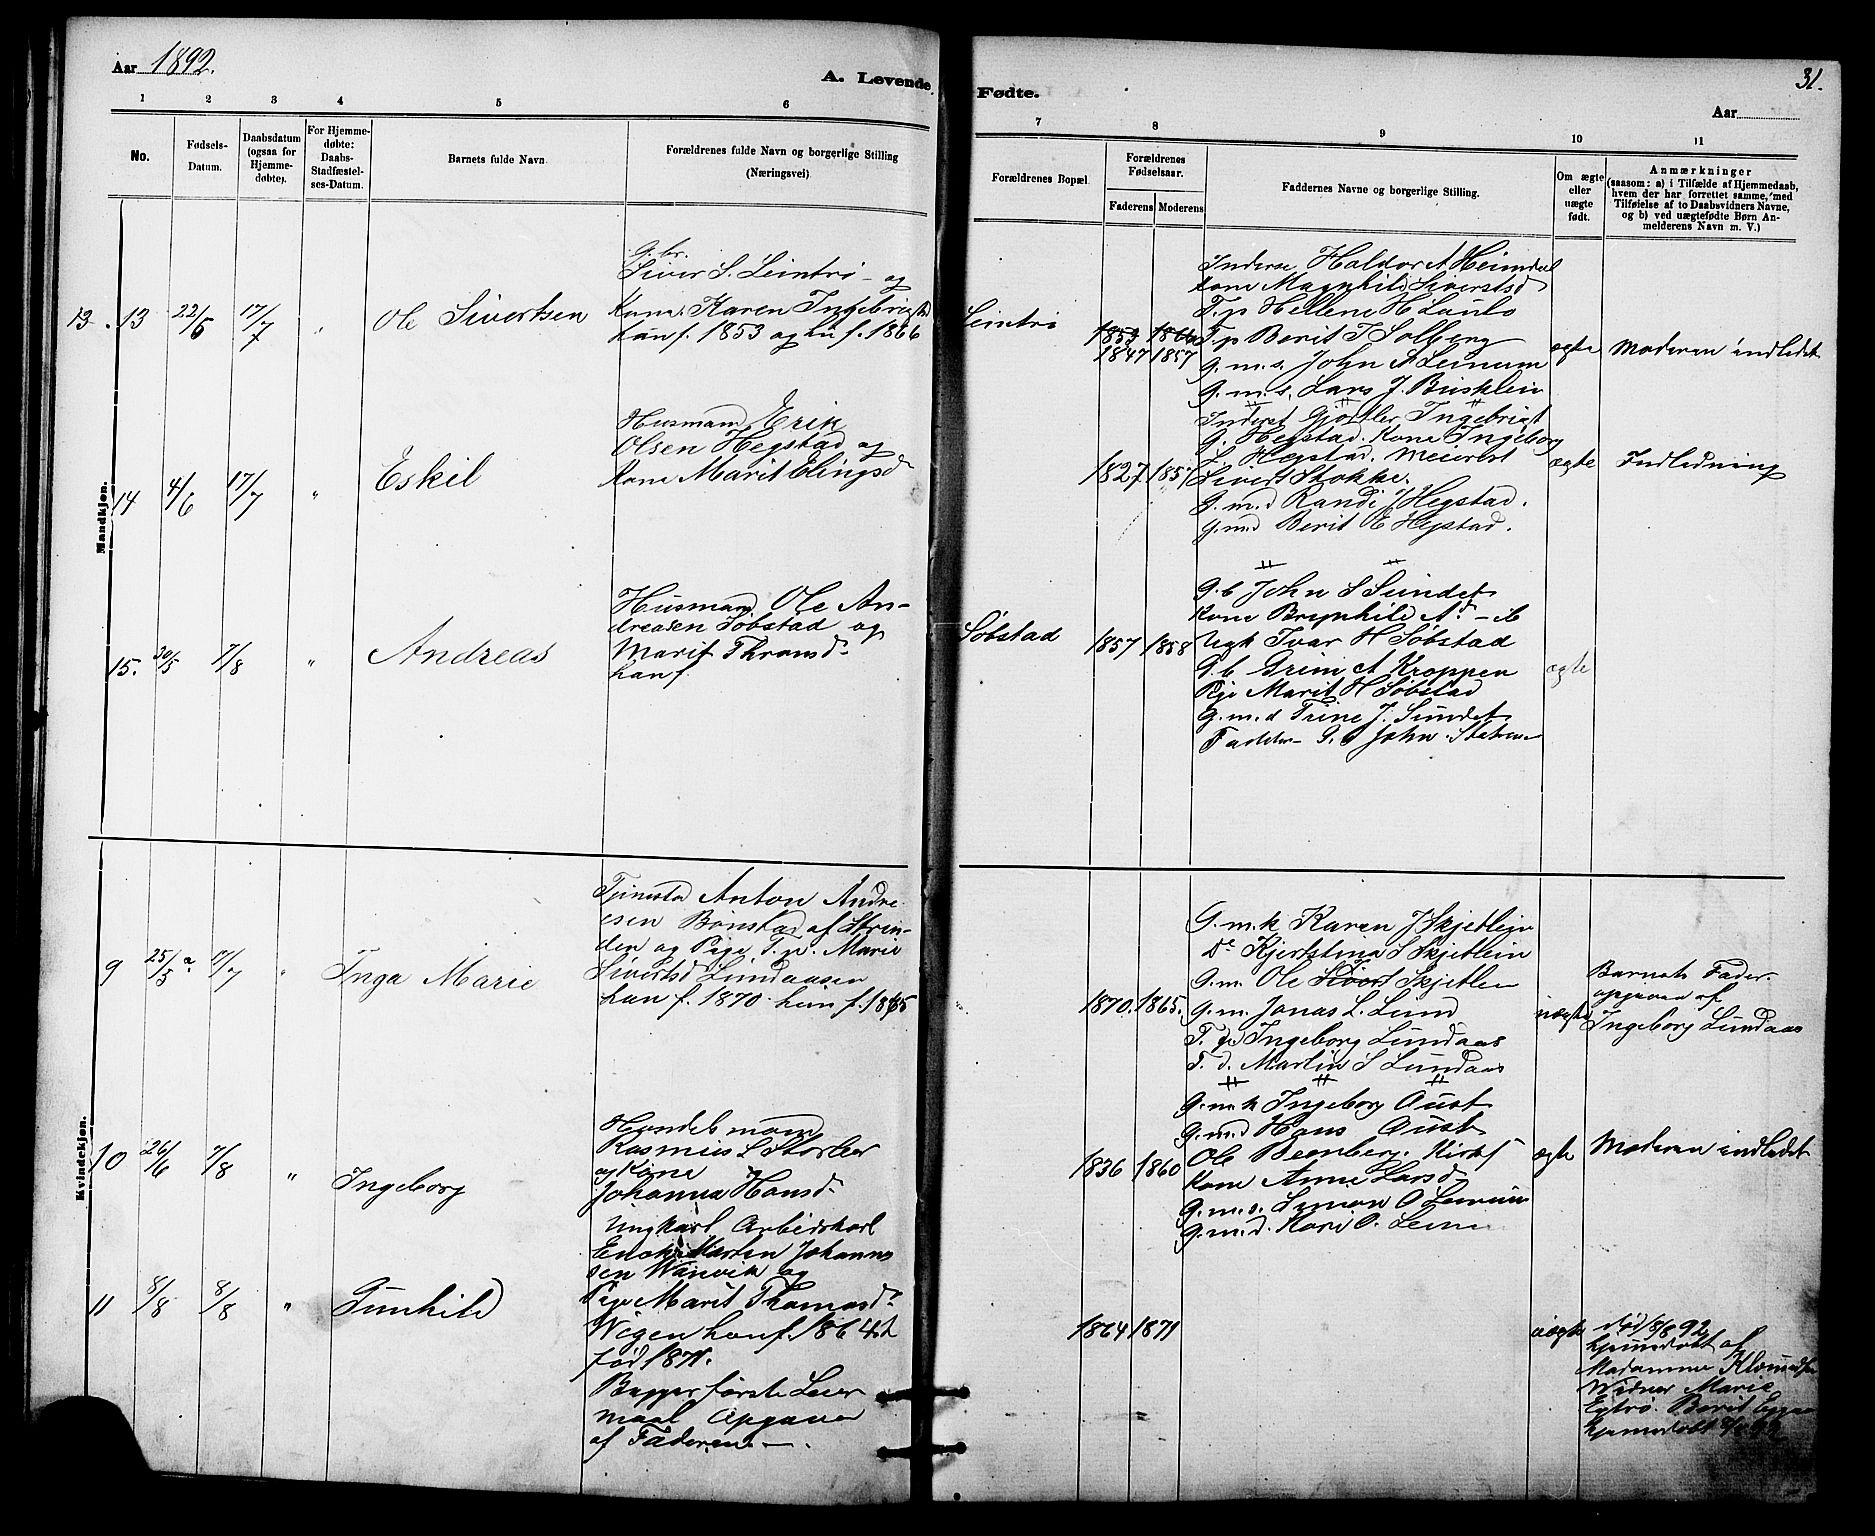 Aar 1892.
A. Levende
Fødte.
31.
Aar
1 2 3 4 5 6 7 8 9 10 11
No.
Fødsels-
Datum.
Daabsdatum
(ogsaa for
Hjemme-
døbte).
For Hjemme-
døbte:
Daabs-
Stadfæstel-
ses-Datum.
Barnets fulde Navn.
Forældrenes fulde Navn og borgerlige Stilling
(Næringsvei)
Forældrenes Bopæl.
Forældrenes
Fødselsaar.
Faderens Moderens
Faddernes Navne og borgerlige Stilling.
Om ægte
eller
uægte
født.
Anmærkninger
(saasom: a) i Tilfælde af Hjemmedaab,
hvem der har forrettet samme, med
Tilføielse af to Daabsvidners Navne,
og b) ved uægtefødte Børn An-
melderens Navn m. V.)
Mandkjøn.
13. 13 22/5 17/7 Ole Sivertsen
G.br.
Siver S. Leintrø - og
Kone Karen Ingebrigtsd
han f. 1853 og hu f. 1866
Leintrø
1853 1866
1847 1857
Inderse Haldor A Heimdal
Kone Magnhild Sivertsd
T.p Hellene H Laulo
T.p Berit J Solberg
G.m.s. John A Leinum
G.m.s. Lars J. Busklein
ægte
Moderen indledet
14 4/6 17/7 " Eskil
Husmand Erik
Olsen Hegstad og
Kone Marit Elingsd
1827 1857
Inderst Ingebrigt
G. Hegstad. Kone Ingeborg
L Hegstad. Meierest
Sivert Stokke.
G.m.d Randi J Hegstad.
G.m.d Berit O E Hegstad.
ægte
Indledning
15. 30/5 7/8 " Andreas
Husmand Ole An-
dreasen Søbstad og
Marit Thomsd.
han f.
Søbstad
1857 1858
G.b John S Sundet
Kone Brynhild A d - ib
Ugk Ivar H Søbstad
G.b Grim A Kroppen
Pige Marit H Søbstad
G.m.d Trine J. Sundet
Fadder - G. John
ægte
Kvindekjøn.
9 25/5 17/7 " Inga Marie
Anton Andre-
esen Bønstad af Strin-
den og Pige T.p. Marie
Sivertsd Lundaasen
han f. 1870 hun f. 1865
1870. 1865.
G.m.k Karen J Skjetlein
Do Kjerstina S Skjetlein
G.m. Ole Sivert Skjetlein
G.m. Jonas L. Lund
T.p Ingeborg Lundaas
T.d. Martin S Lundaas
uægte
Barnets Fader
opgiven af
Ingeborg Lundaas
10 26/6 7/8 " Ingeborg
Handelsmand
Rasmus L Storler
og Kone
Johanna Hansd.
1836 1860
G.m.k Ingeborg Oust
G.m.d Hans Oust
Ole Beenberg. Kirks
Kone Anne Larsd
G.m.s. Simon O Leinum
G.m.d. Kari O. Lein
ægte
Moderen indledet
11 8/8 8/8 " Gunhild
Ungkarl Arbeidskarl
Enok Martin Johanne
sen Wanvik og
Pige Marit Thomasd.
Wigen han f. 1864. h
fød 1871.
Begges første Leier
maal Opgaver
af Faderen -.
1864 1871
uægte
død 18/8 92
hjemmedøbt af
Madamme
Widner Marie
Berit
hjemmedøbt 8/8 92